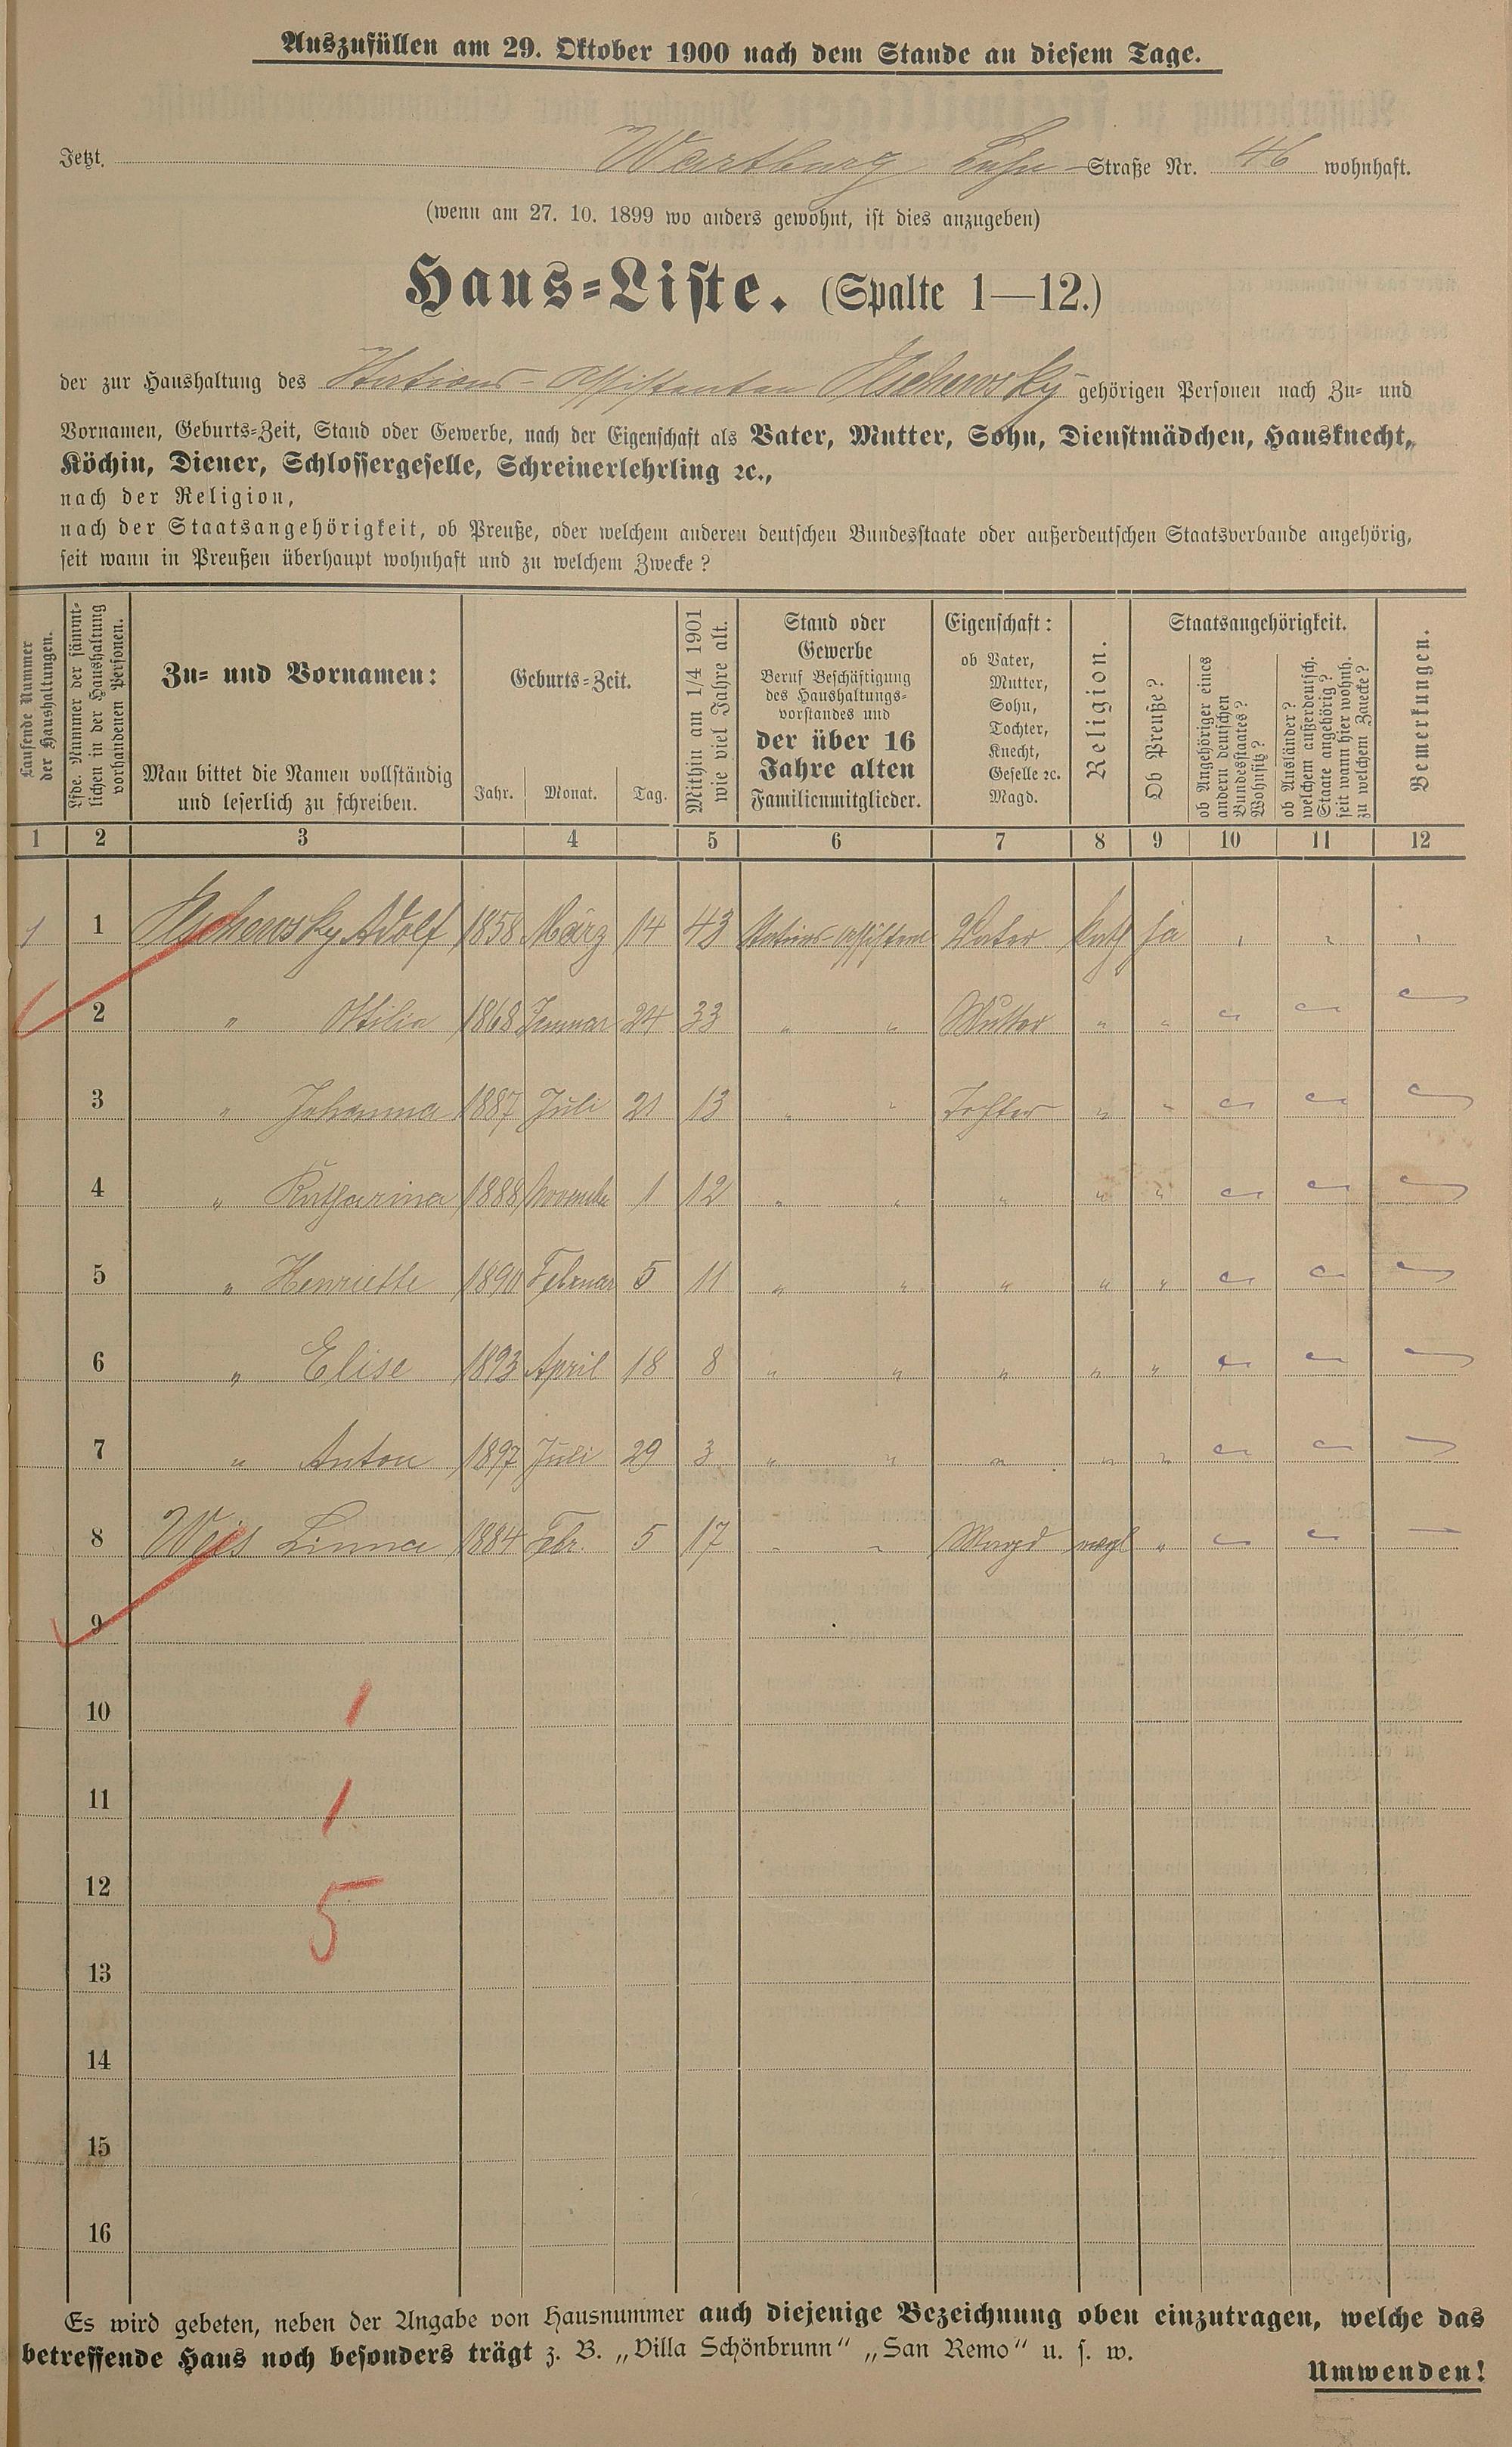 Auszufüllen am 29. Oktober 1900 nach dem Stande an diesem Tage.
Jetzt. Wartburg Lahn-Straße Nr. 46 wohnhaft.
(wenn am 27. 10. 1899 wo anders gewohnt, ist dies anzugeben)
Haus-Liste. (Spalte 1—12.)
der zur Haushaltung des Stations-Assistenten gehörigen Personen nach Zu- und
Vornamen, Geburts-Zeit, Stand oder Gewerbe, nach der Eigenschaft als Vater, Mutter, Sohn, Dienstmädchen, Hausknecht,
Köchin, Diener, Schlossergeselle, Schreinerlehrling ꝛc.,
nach der Religion,
nach der Staatsangehörigkeit, ob Preuße, oder welchem anderen deutschen Bundesstaate oder außerdeutschen Staatsverbande angehörig,
seit wann in Preußen überhaupt wohnhaft und zu welchem Zwecke?
Laufende Nummer der Haushaltungen.
Lfde. Nummer der sämmtlichen in der Haushaltung vorhandenen Personen.
Zu- und Vornamen:
Man bittet die Namen vollständig
und leserlich zu schreiben.
Geburts-Zeit.
Jahr. Monat. Tag.
Mithin am 1/4 1901 wie viel Jahre alt.
Stand oder
Gewerbe
Beruf Beschäftigung
des Haushaltungs-
vorstandes und
der über 16
Jahre alten
Familienmitglieder.
Eigenschaft:
ob Vater,
Mutter,
Sohn,
Tochter,
Knecht,
Geselle ꝛc.
Magd.
Religion.
Staatsangehörigkeit.
Ob Preuße?
ob Angehöriger eines andern deutschen Bundesstaates? Wohnsitz?
ob Ausländer? welchem außerdeutsch. Staate angehörig? seit wann hier wohnh. zu welchem Zwecke?
Bemerkungen.
1 2 3 4 5 6 7 8 9 10 11 12
1 1 Adolf 1858 März 14 43 Stations-Assistent Vater kath ja
2 " Ottilie 1868 Januar 24 33 " " Mutter " "
3 " Johanna 1887 Juli 21 13 " " Tochter " "
4 " Katharina 1888 November 1 12 " " " " "
5 " Henriette 1890 Februar 5 11 " " " " "
6 " Elise 1893 April 18 8 " " " " "
7 " Anton 1897 Juli 29 3 " " " " "
8 Weis Linna 1884 Febr. 5 17 " " Magd "
9
10 1
11 1
12 5
13
14
15
16
Es wird gebeten, neben der Angabe von Hausnummer auch diejenige Bezeichnung oben einzutragen, welche das
betreffende Haus noch besonders trägt z. B. „Villa Schönbrunn" „San Remo" u. s. w.
Umwenden!